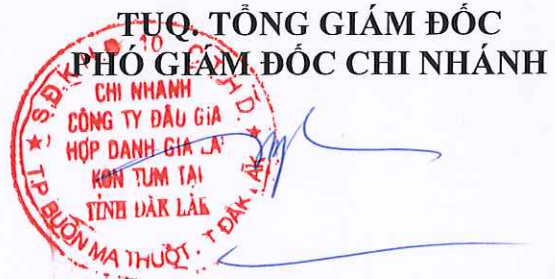 TUQ. TỔNG GIÁM ĐỐC
PHÓ GIÁM ĐỐC CHI NHÁNH
CHI NHANH
CÔNG TY ĐẤU GIA
HỢP DANH GIA LAI
KON TUM TẠI
TỈNH ĐĂK LĂK
T.P BUÔN MA THUỘT . T ĐĂK LĂK